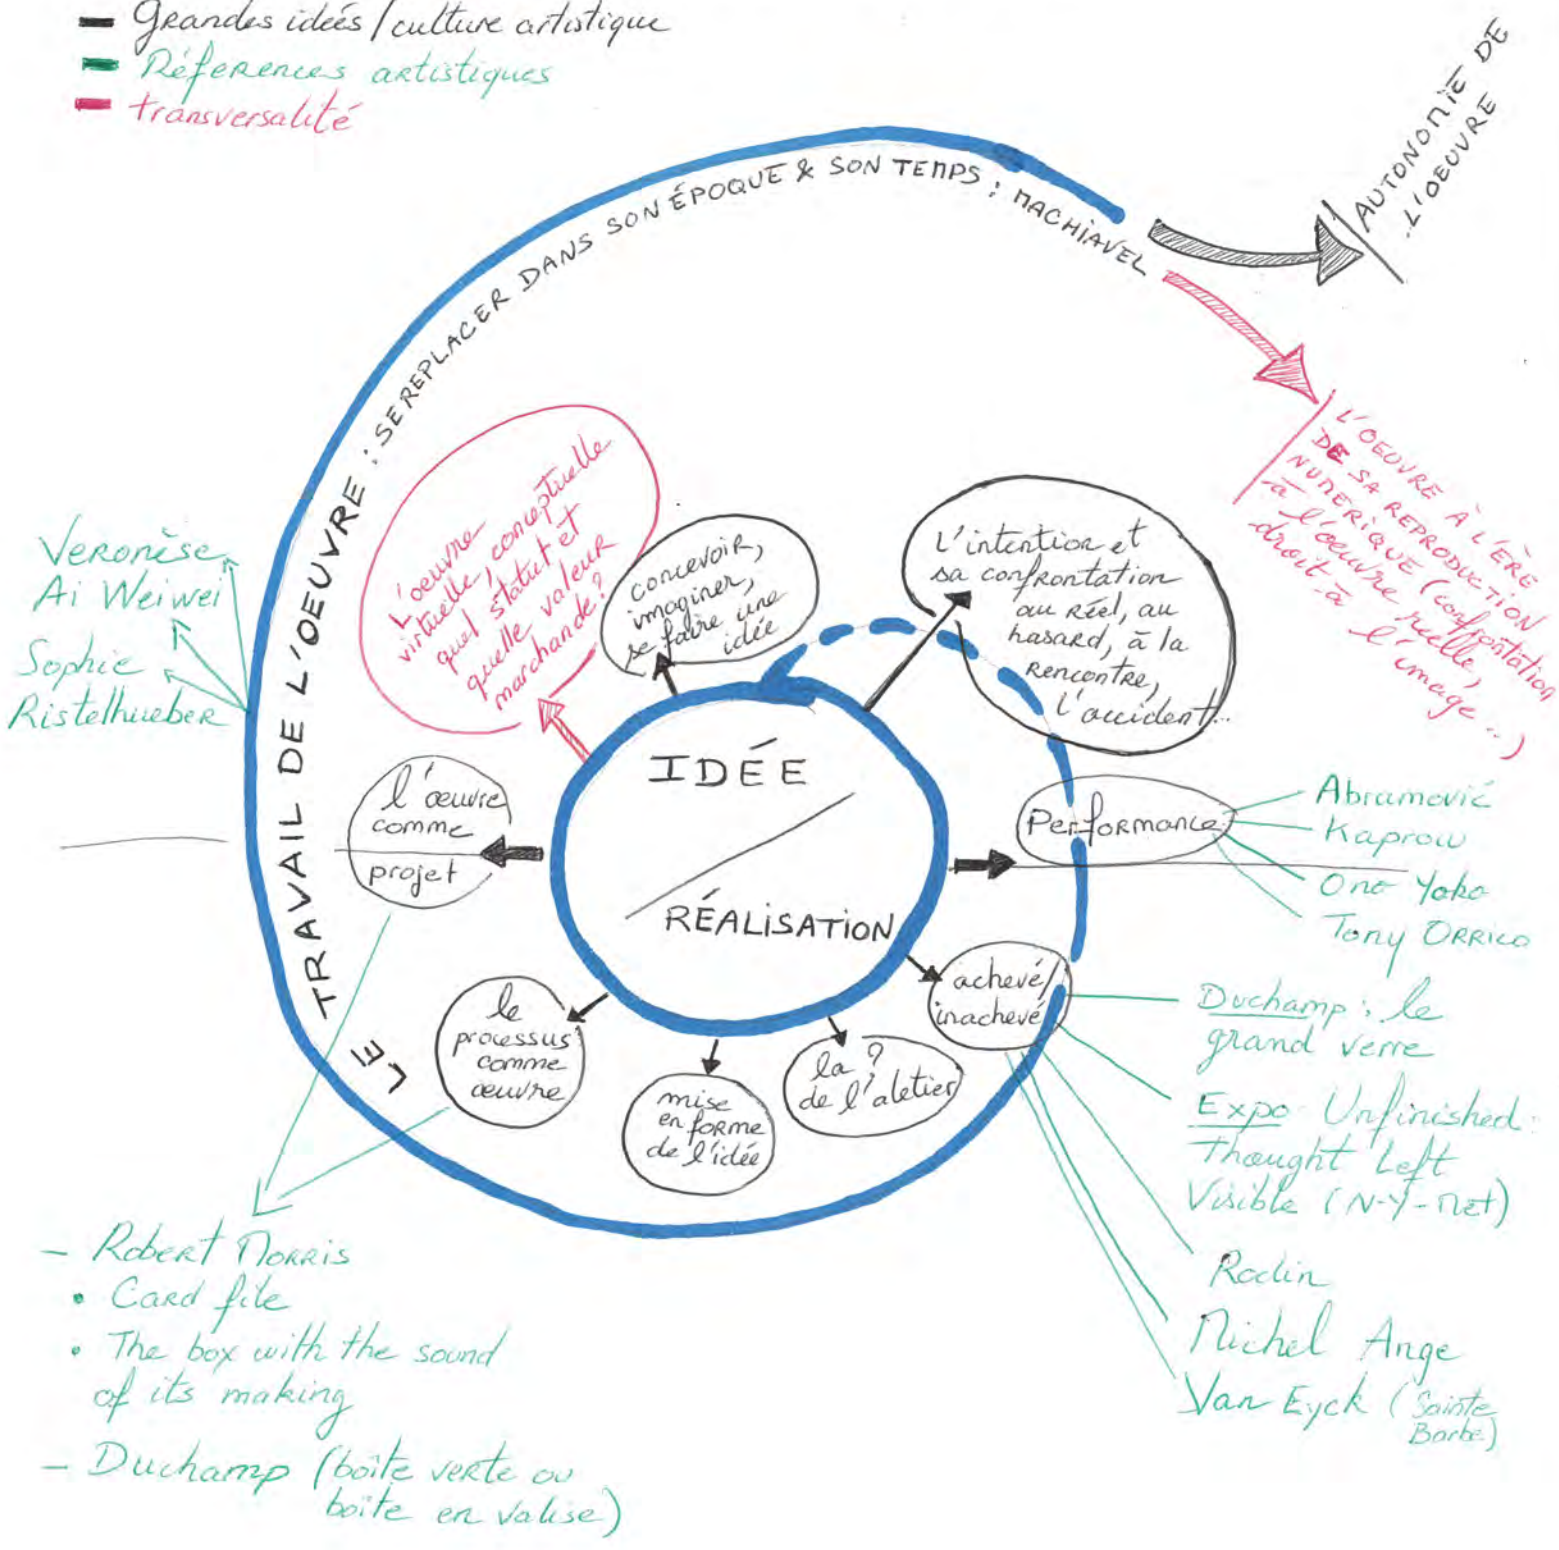 Grandes idées / culture artistique
Réferences artistiques
transversalité
AUTONOMIE DE
L'OEUVRE
LE TRAVAIL DE L'OEUVRE : SE REPLACER DANS SON ÉPOQUE & SON TEMPS : MACHIAVEL
L'OEUVRE À L'ÈRE
DE SA REPRODUCTION
NUMERIQUE (confrontation
à l'oeuvre réelle,
droit à
l'image...)
L'oeuvre
virtuelle, conceptuelle
quel statut et
quelle valeur
marchande ?
concevoir,
imaginer,
se faire une
idée
L'intention et
sa confrontation
au réel, au
hasard, à la
rencontre,
l'accident...
Veronèse
Ai Weiwei
Sophie
Ristelhueber
IDÉE
RÉALISATION
l'œuvre
comme
projet
Performance
Abramović
Kaprow
Ono Yoko
Tony ORRICO
achevé/
inachevé
Duchamp : le
grand verre
Expo Unfinished :
Thought Left
Visible (N-Y-Met)
Rodin
Michel Ange
Van Eyck (Sainte
Barbe)
le
processus
comme
œuvre
mise
en forme
de l'idée
la ?
de l'aletier
- Robert Morris
• Card file
• The box with the sound
of its making
- Duchamp (boîte verte ou
boîte en valise)